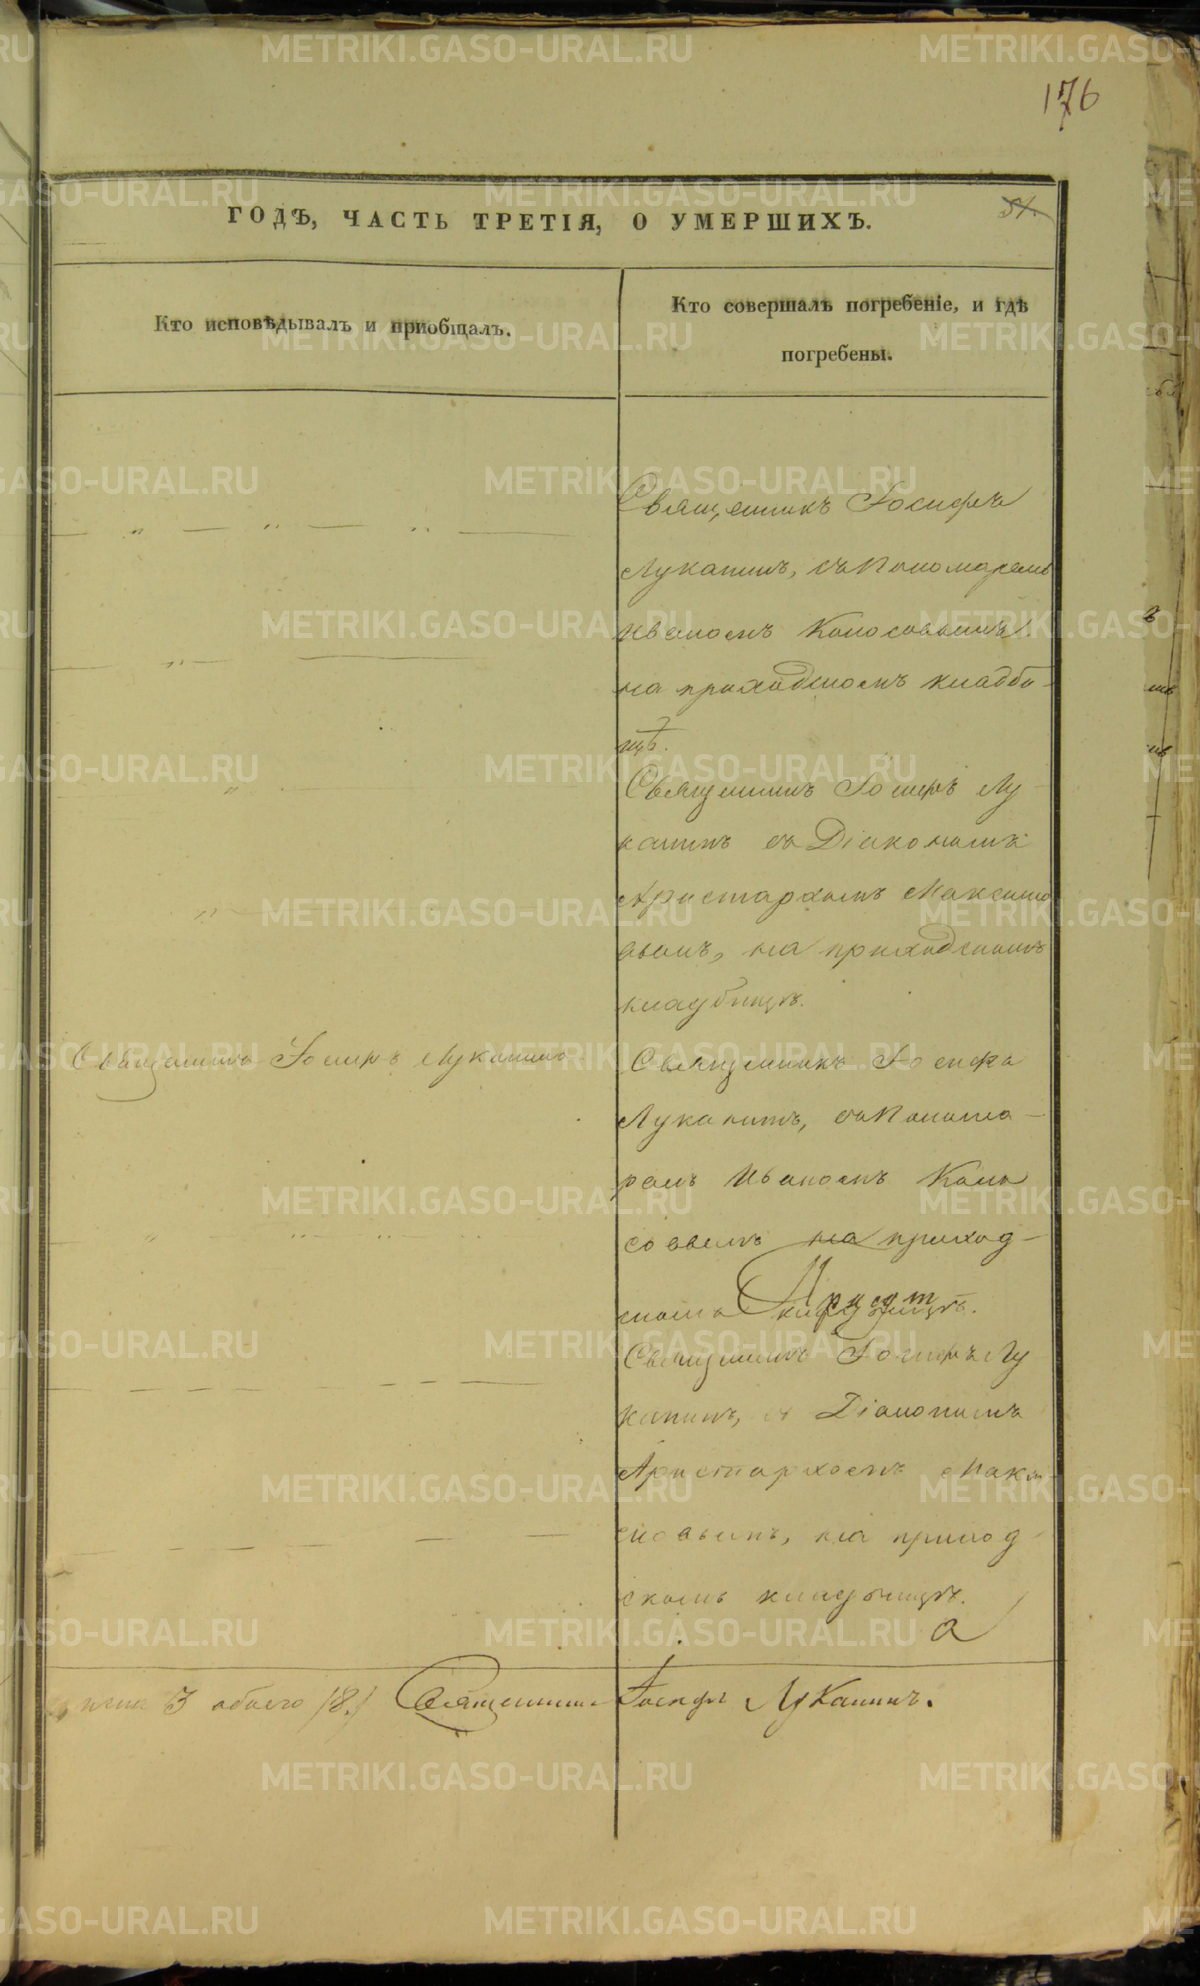 176
ГОДЪ, ЧАСТЬ ТРЕТІЯ, О УМЕРШИХЪ.
Кто исповѣдывалъ и приобщалъ.
Кто совершалъ погребеніе, и гдѣ
погребены.
Священникъ Іосифъ
Лукапинъ, съ Пономаремъ
Иваномъ Колосовымъ
на приходскомъ кладби-
щѣ.
Священникъ Іосифъ Лу
капинъ съ Діакономъ
Аристархомъ Максимо
вымъ, на приходскомъ
кладбищѣ.
Священникъ Іосифъ Лукапинъ
Священникъ Іосифъ
Лукапинъ, съ Понома-
ремъ Иваномъ Коло
совымъ на приход-
скомъ кладбищѣ.
Священникъ Іосифъ Лу
капинъ, съ Діакономъ
Аристархомъ Макси-
мовымъ, на приход
скомъ кладбищѣ.
3 обоего /8./ Священникъ Іосифъ Лукапинъ.
METRIKI.GASO-URAL.RU